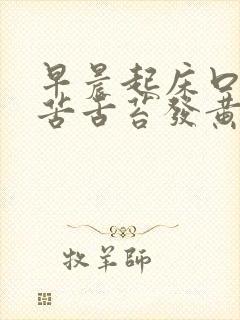 早晨起床口
苦舌苔發黃
牧羊師